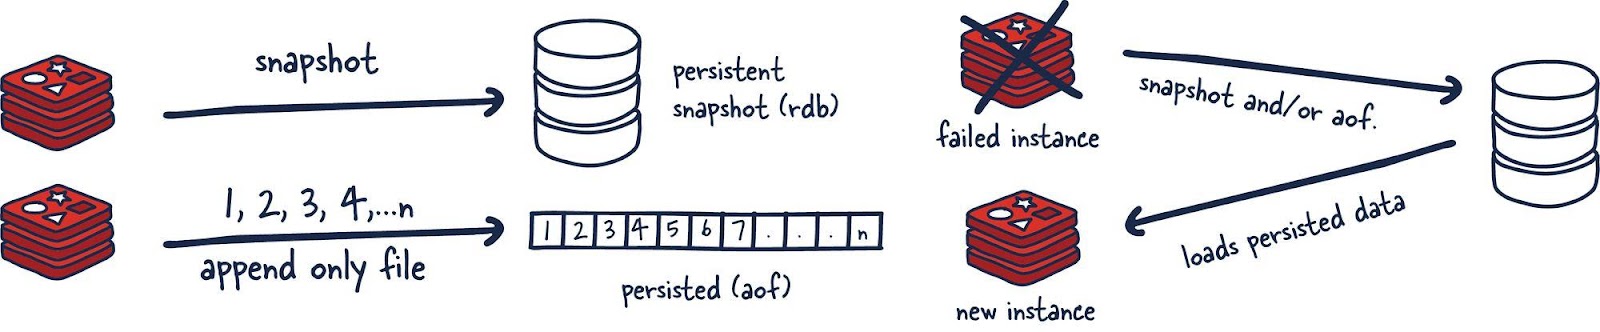 snapshot
persistent
snapshot (rdb)
1, 2, 3, 4,...n
append only file
1 2 3 4 5 6 7 . . . n
persisted (aof)
failed instance
snapshot and/or aof.
loads persisted data
new instance